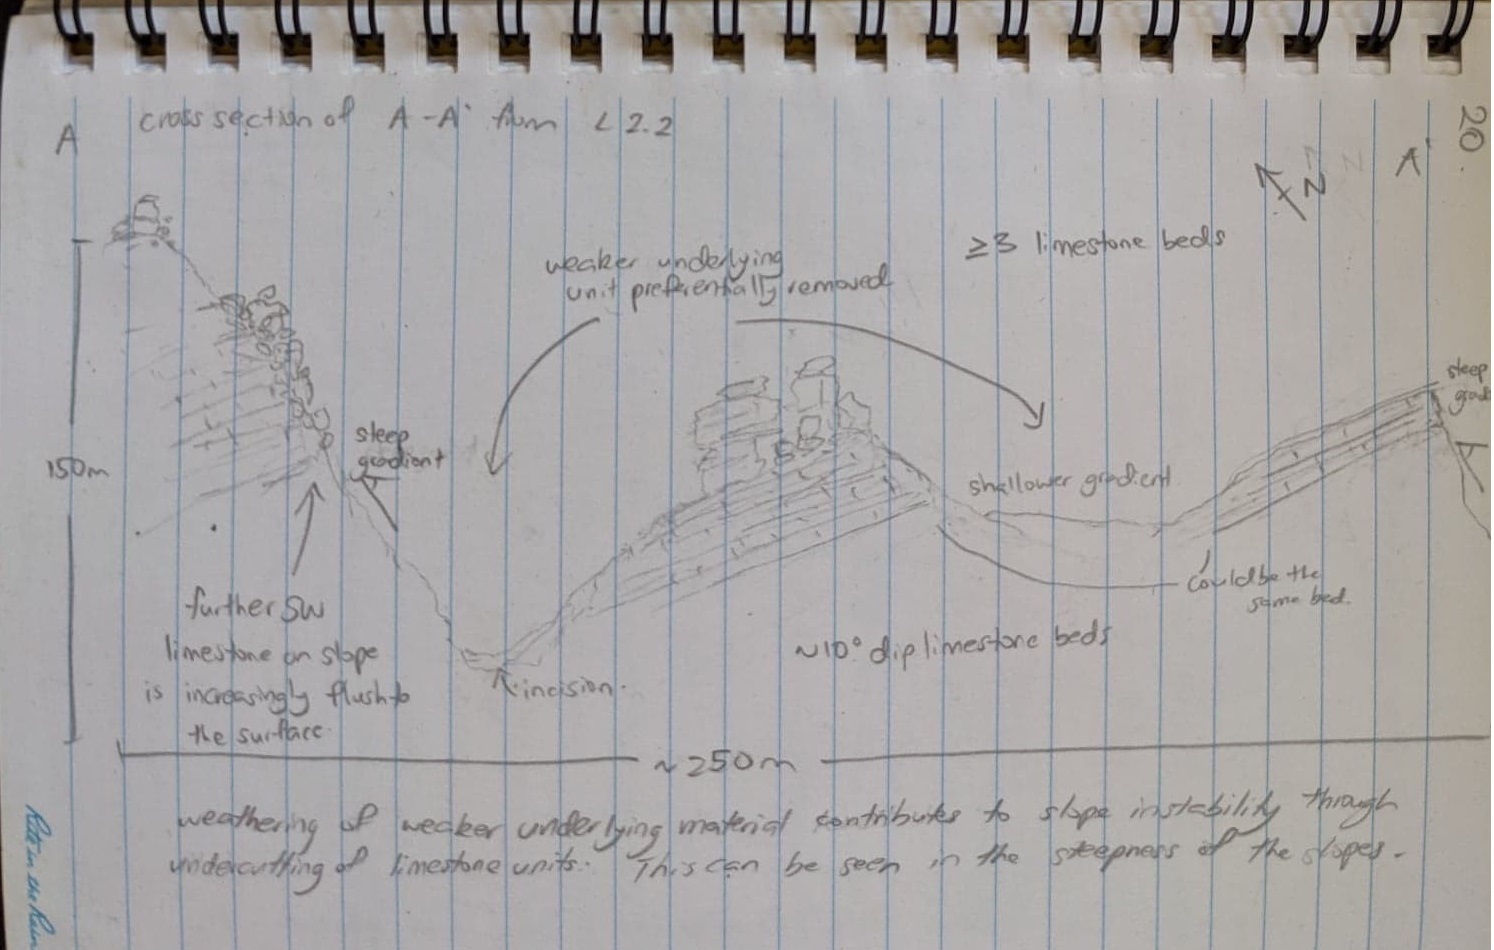 20.
cross section of A - A' from L 2.2
A
A'
N
≥3 limestone beds
weaker underlying
unit preferentially removed
steep
150m
steep
gradient
shallower gradient
could be the
same bed.
further SW
limestone on slope
is increasingly flush to
the surface
~10° dip limestone beds
incision.
~250m
weathering of weaker underlying material contributes to slope instability through
undercutting of limestone units. This can be seen in the steepness of the slopes.
Rite in the Rain